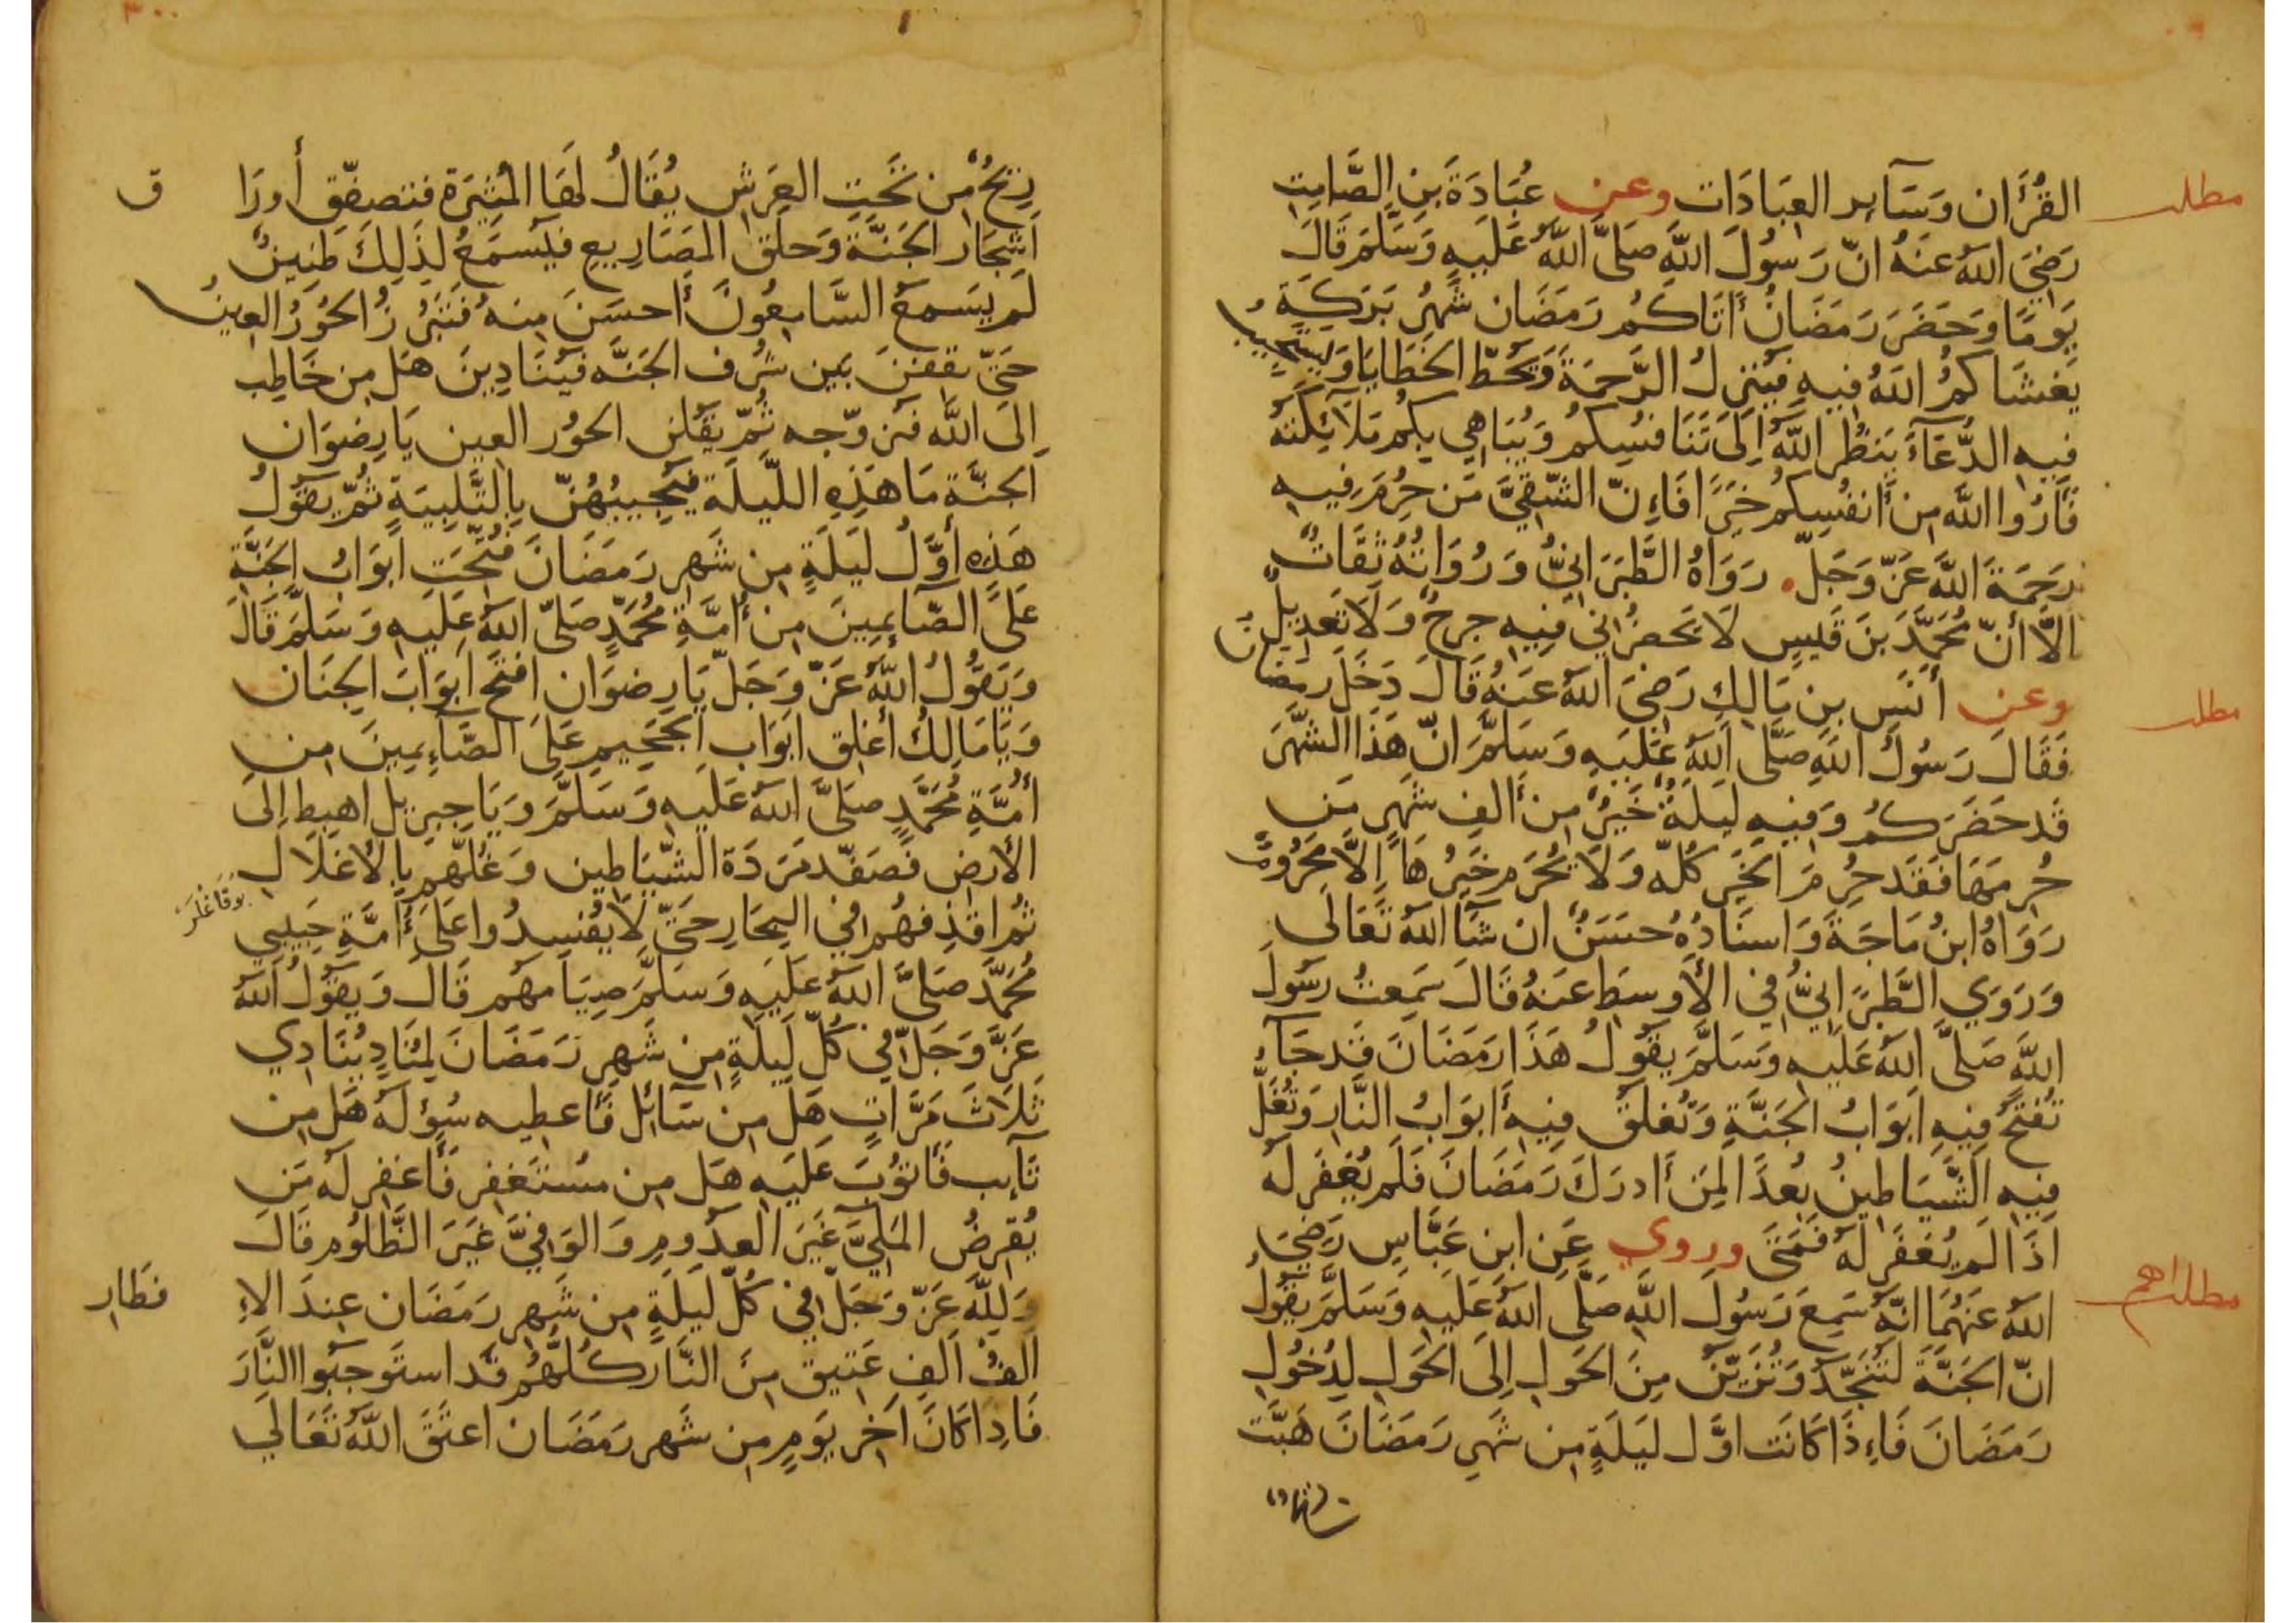 مطلب
القُرْآن وَسَآيِر العِبَادَات وعن عُبَادَةَ بنِ الصَّامِتِ
رَضِيَ اللهُ عَنهُ انّ رَسُولَ اللَّهِ صَلَّى اللهُ عَلَيهِ وَسَلَّمَ قَالَ
يَومًا وَحَضَرَ رَمَضَانُ أَتَاكُم رَمَضَان شَهرُ بَرَكَةٍ
يَغشَاكمُ اللهُ فِيهِ فَيُنزِلُ الرَّحمَةَ وَيَحُطّ الخَطَايَا وَيَستَجِيبُ
فِيهِ الدُّعَآءَ يَنظُر اللهُ إِلَى تَنَافُسِكُم وَيُبَاهِي بِكُم مَلآئِكَتَهُ
فَأرُوا اللهَ مِن أَنفُسِكُم خَيرًا فَاءِنّ الشَّقِيَّ مَن حُرِمَ فِيهِ
رَحمَةَ اللهِ عَزّ وَجَلّ . رَوَاهُ الطَّبَرَانِيُّ وَرُوَاتُهُ ثِقَاتٌ
الَّا أنّ مُحَمَّدَ بنَ قَيسٍ لَا يَحضُرُنِي فِيهِ جرحٌ وَلَا تَعدِيلٌ
مطلب
وعن أنَسِ بنِ مَالِكٍ رَضِيَ اللهُ عَنهُ قَالَ دَخَلَ رَمَضَانُ
فَقَالَ رَسُولُ اللهِ صَلَّى اللهُ عَلَيهِ وَسَلَّمَ انّ هَذَا الشَّهرَ
قَد حَضَرَكُم وَفِيهِ لَيلَةٌ خَيرٌ مِن أَلفِ شَهرٍ مَن
حُرِمَهَا فَقَد حُرِمَ الخَيرَ كُلّهُ وَلَا يُحرَم خَيرُهَا إِلَّا مَحرُومٌ
رَوَاهُ ابنُ مَاجَةَ وَاسنَادُهُ حسَنٌ ان شَآ اللهُ تَعَالَى
وَرَوَي الطَّبَرَانِيُّ في الأَوسَطِ عَنهُ قَالَ سَمِعتُ رَسُولَ
اللَّهِ صَلَّى اللهُ عَلَيهِ وَسَلَّمَ يَقُولُ هَذَا رَمَضَانَ قَد جَآءَ
تُفتَحُ فِيهِ أبوَابُ الجَنَّةِ وَتُغلَقُ فِيهِ أَبوَابُ النَّارِ وَتُغَلّ
فِيهِ الشَّيَاطِينُ بُعدًا لِمَن أَدرَكَ رَمَضَانَ فَلَم يُغفَر لَهُ
اذَا لَم يُغفَر لَهُ فَمَتَى وروي عَنِ ابنِ عَبَّاسٍ رَضِيَ
مطلب اهم
اللهُ عَنهُمَا انّهُ سَمِعَ رَسُولَ اللَّهِ صَلَّى اللهُ عَلَيهِ وَسَلَّمَ يَقُولُ
انّ الجَنَّةَ لَتُنَجَّدُ وَتُزَيَّنُ مِنَ الحَولِ إِلَى الحَولِ لِدُخُولِ
رَمَضَانَ فَاءِذَا كَانَت اوَّل لَيلَةٍ مِن شَهرِ رَمَضَانَ هَبَّت
رِيحٌ مِن تَحتِ العَرشِ يُقَالُ لَهَا المُثِيرَة فتصفِق أورَا ق
اشجَار الجَنَّة وَحلَق المَصَارِيعِ فيُسمَعُ لِذَلِكَ طَنِينٌ
لَم يسمَعِ السَّامِعُونَ أَحسَنَ مِنهُ فَتَبرُزُ الحُورُ العِينُ
حَتّى يقفنَ بَين شُرُفِ الجَنَّه فَيُنَادِينَ هَل مِن خَاطِب
اِلَى اللَّه فَيُزَوّجه ثُمّ يَقُلنَ الحُورُ العِين يَا رِضوَان
الجَنَّةِ مَا هَذِهِ اللَّيلَة فَيُجِيبُهُنّ بِالتَّلبِيَةِ ثُمّ يَقُولُ
هَذِهِ أوَّلُ لَيلَةٍ مِن شَهرِ رَمَضَانَ فُتّحَت أَبوَابُ الجَنَّةِ
عَلَى الصَّآئِمِينَ مِن أُمَّةِ مُحَمَّدٍ صَلَّى اللهُ عَلَيهِ وَسَلَّمَ قَالَ
وَيَقُولُ اللهُ عَزّ وَجَلّ يَا رِضوَان افتَح أبوَابَ الجِنَان
وَيَا مَالِكُ أغلِق أبوَاب الجَحِيمِ عَلَى الصَّآئِمِينَ مِن
أمَّةِ مُحَمَّدٍ صَلَّى اللهُ عَلَيهِ وَسَلَّمَ وَيَا جِبرِيل اهبِط إِلَى
الأرضِ فَصَفّد مَرَدَة الشَّيَاطِين وَغُلَّهُم بِالأغلَالِ
ثُمّ اقذِفهُم في البِحَارِ حَتّى لَا يُفسِدُوا عَلَى أُمَّةِ حَبِيبِي
مُحَمَّد صَلَّى اللهُ عَلَيهِ وَسَلَّمَ صِيَامهُم قَالَ وَيَقُولُ اللهُ
عَزَّ وَجَلّ في كُلّ لَيلَةٍ مِن شَهرِ رَمَضَانَ لِمُنَادٍ يُنَادِي
ثَلَاثَ مَرَّاتٍ هَل مِن سَآئِل فَأُعطِيه سُؤلَهُ هَل مِن
تَآيب فَأتوُبَ عَلَيهِ هَل مِن مُستَغفِر فَأَغفِر لَهُ مَن
يُقرِضُ المَلِيَّ غَيرَ العدُومِ وَالوَفِيَّ غَيرَ الظَّلُوم قَالَ
وَلِلَّهِ عَزّ وَجَلّ في كُلّ لَيلَةٍ مِن شَهرِ رَمَضَان عِندَ الاِ فطَارِ
ألفُ ألفِ عَتيق مِنَ النَّار كُلّهُم قَد استَوجَبُوا النَّارَ
فَاِذا كَانَ آخِر يَومٍ مِن شَهرِ رَمَضَان اعتَقَ اللهُ تَعَالَي